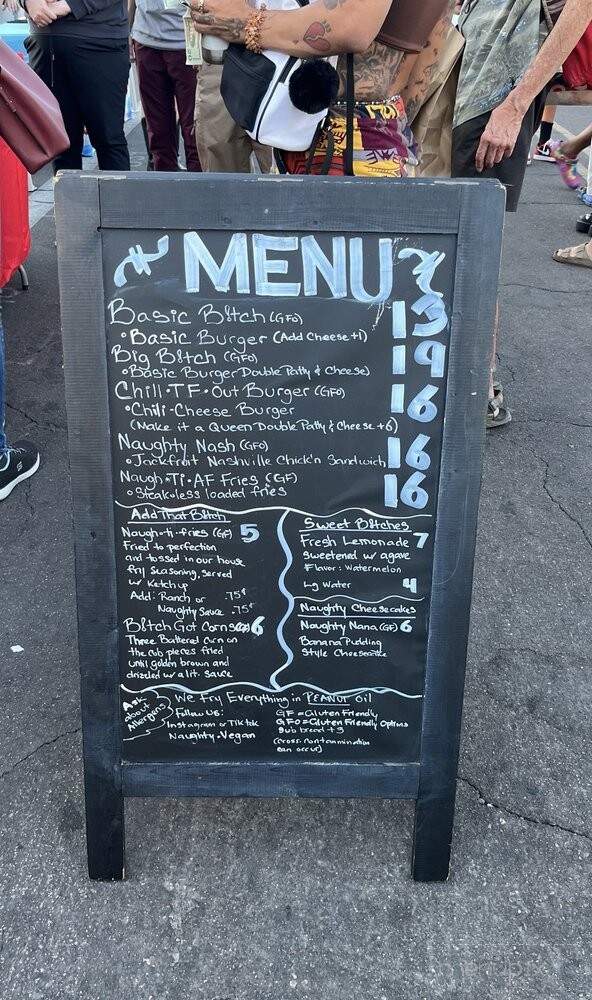 MENU
Basic B!tch (GFO) 13
• Basic Burger (Add Cheese +1)
Big B!tch (GFO) 19
• Basic Burger Double Patty & Cheese)
Chill·T F·Out Burger (GFO) 16
• Chili-Cheese Burger
(Make it a Queen Double Patty & Cheese +6)
Naughty Nash (GFO) 16
• Jackfruit Nashville Chick'n Sandwich
Naugh·Ti·AF Fries (GF) 16
• Steak-less loaded fries
Add That B!tch
Naugh-ti-fries (GF) 5
Fried to perfection
and tossed in our house
fry Seasoning, Served
w/ Ketchup
Add: Ranch or .75¢
Naughty Sauce .75¢
B!tch Got Corn 6
Three Battered Corn on
the cob pieces fried
until golden brown and
drizzled w/ a lit. sauce
Sweet B!tches
Fresh Lemonade 7
Sweetened w/ agave
Flavor: Watermelon
Lg Water 4
Naughty Cheesecakes
Naughty Nana (GF) 6
Banana Pudding
Style Cheesecake
Ask about Allergens
We fry Everything in PEANUT oil
Follow us:
Instagram or Tik tok
Naughty.Vegan
GF = Gluten Friendly
GFO = Gluten Friendly Options
Sub bread +3
(cross-contamination
can occur)